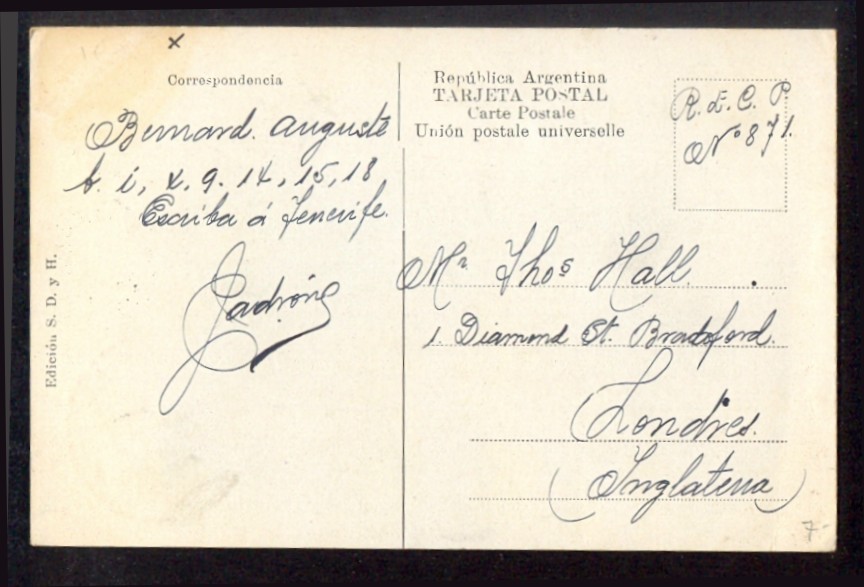 x
Correspondencia
Bernard. Auguste
b. i, x, 9. 14, 15, 18
Escriba á Tenerife.
Padrón
Edición S. D. y H.
República Argentina
TARJETA POSTAL
Carte Postale
Unión postale universelle
R. d. C. P.
Nº 871.
Mr Thos Hall.
1. Diamond St. Bradford.
Londres.
(Inglaterra)
7-